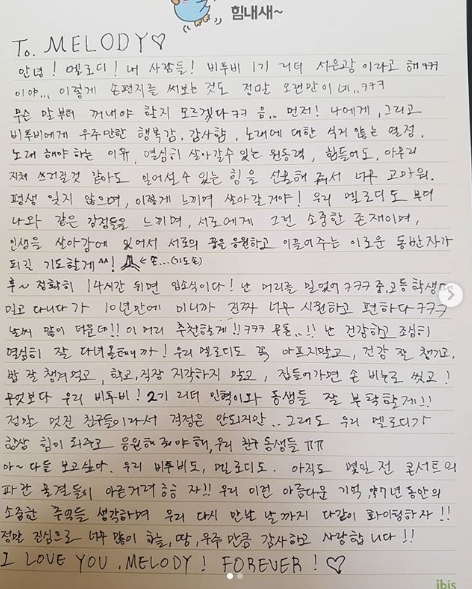 힘내새~
To. MELODY♡
안녕! 멜로디! 내 사랑들! 비투비 1기 리더 서은광 이라고 해 ㅋㅋ
이야... 이렇게 손편지를 써보는 것도 정말 오랜만이네..ㅋㅋㅋ
무슨 말부터 꺼내야 할지 모르겠다ㅋㅋ 음.. 먼저! 나에게, 그리고
비투비에게 우주만한 행복감, 감사함, 노래에 대한 식지 않는 열정,
노래 해야하는 이유, 열심히 살아갈수 있는 원동력, 힘들어도, 아무리
지쳐 쓰러질것 같아도 일어설 수 있는 힘을 선물해 줘서 너무 고마워.
평생 잊지 않으며, 이렇게 느끼며 살아갈 거야! 우리 멜로디도 부디
나와 같은 감정들을 느끼며, 서로에게 그런 소중한 존재이며,
인생을 살아감에 있어서 서로의 꿈을 응원하고 이끌어주는 이로운 동반자가
되길 기도할게^^! ← 손...(기도손)
후~ 정확히 14시간 뒤면 입소식이다! 난 머리를 밀었어 ㅋㅋㅋ 중,고등학생때
밀고 다니다가 10년만에 미니까 진짜 너무 시원하고 편하다 ㅋㅋㅋ
날씨 많이 더운데!! 이 머리 추천할게!! ㅋㅋㅋ 무튼..!! 난 건강하고 조심히
열심히 잘 다녀올테니까! 우리 멜로디도 꼭 아프지말고, 건강 잘 챙기고,
밥 잘 챙겨먹고, 학교,직장 지각하지 말고, 집들어가면 손 비누로 씻고!
무엇보다 우리 비투비! 2기 리더 민혁이와 동생들 잘 부탁할게!!
정말 멋진 친구들이라서 걱정은 안되지만.. 그래도 우리 멜로디가
항상 힘이 되주고 응원해 줘야 해, 우리 친구 동생들 ㅠㅠ
아~ 다들 보고싶다. 우리 비투비도, 멜로디도. 아직도 몇일 전 콘서트의
파란 물결들이 아른거려 흠흠 자!! 우리 이런 아름다운 기억 약 7년 동안의
소중한 추억들 생각하며 우리 다시 만날 날 까지 다같이 화이팅하자!!
정말 진심으로 너무 많이 하늘, 땅, 우주 만큼 감사하고 사랑합니다!!
I LOVE YOU, MELODY! FOREVER! ♡
ibis